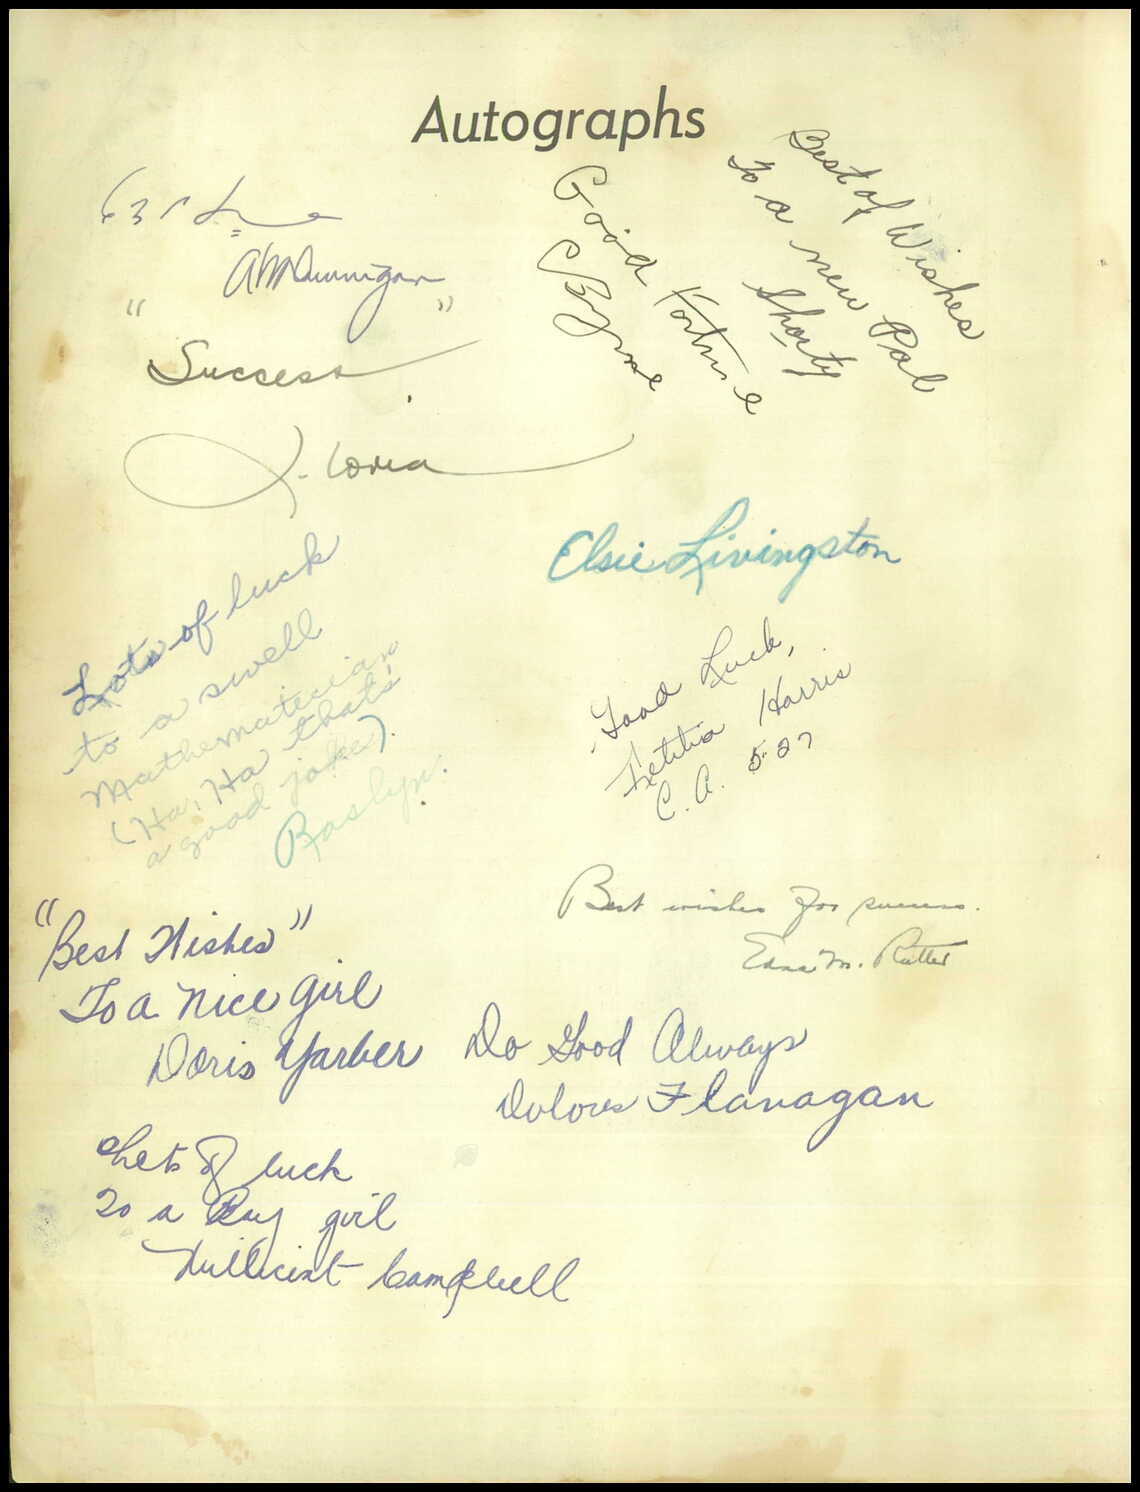 Autographs
AM Dunnigan
"Success."
J. Loria
Good Fortune
C Byrne
Best of Wishes
To a new Pal
Shorty
Elsie Livingston
Lots of luck
to a swell
mathematician
(Ha, Ha that's
a good joke).
Roslyn.
Good Luck,
Letitia Harris
C. A. 5-27
Best wishes for success.
Edna M. Rutter
"Best Wishes"
To a Nice girl
Doris Yarber
Do Good Always
Dolores Flanagan
Lots of luck
To a girl
Millicent Campbell